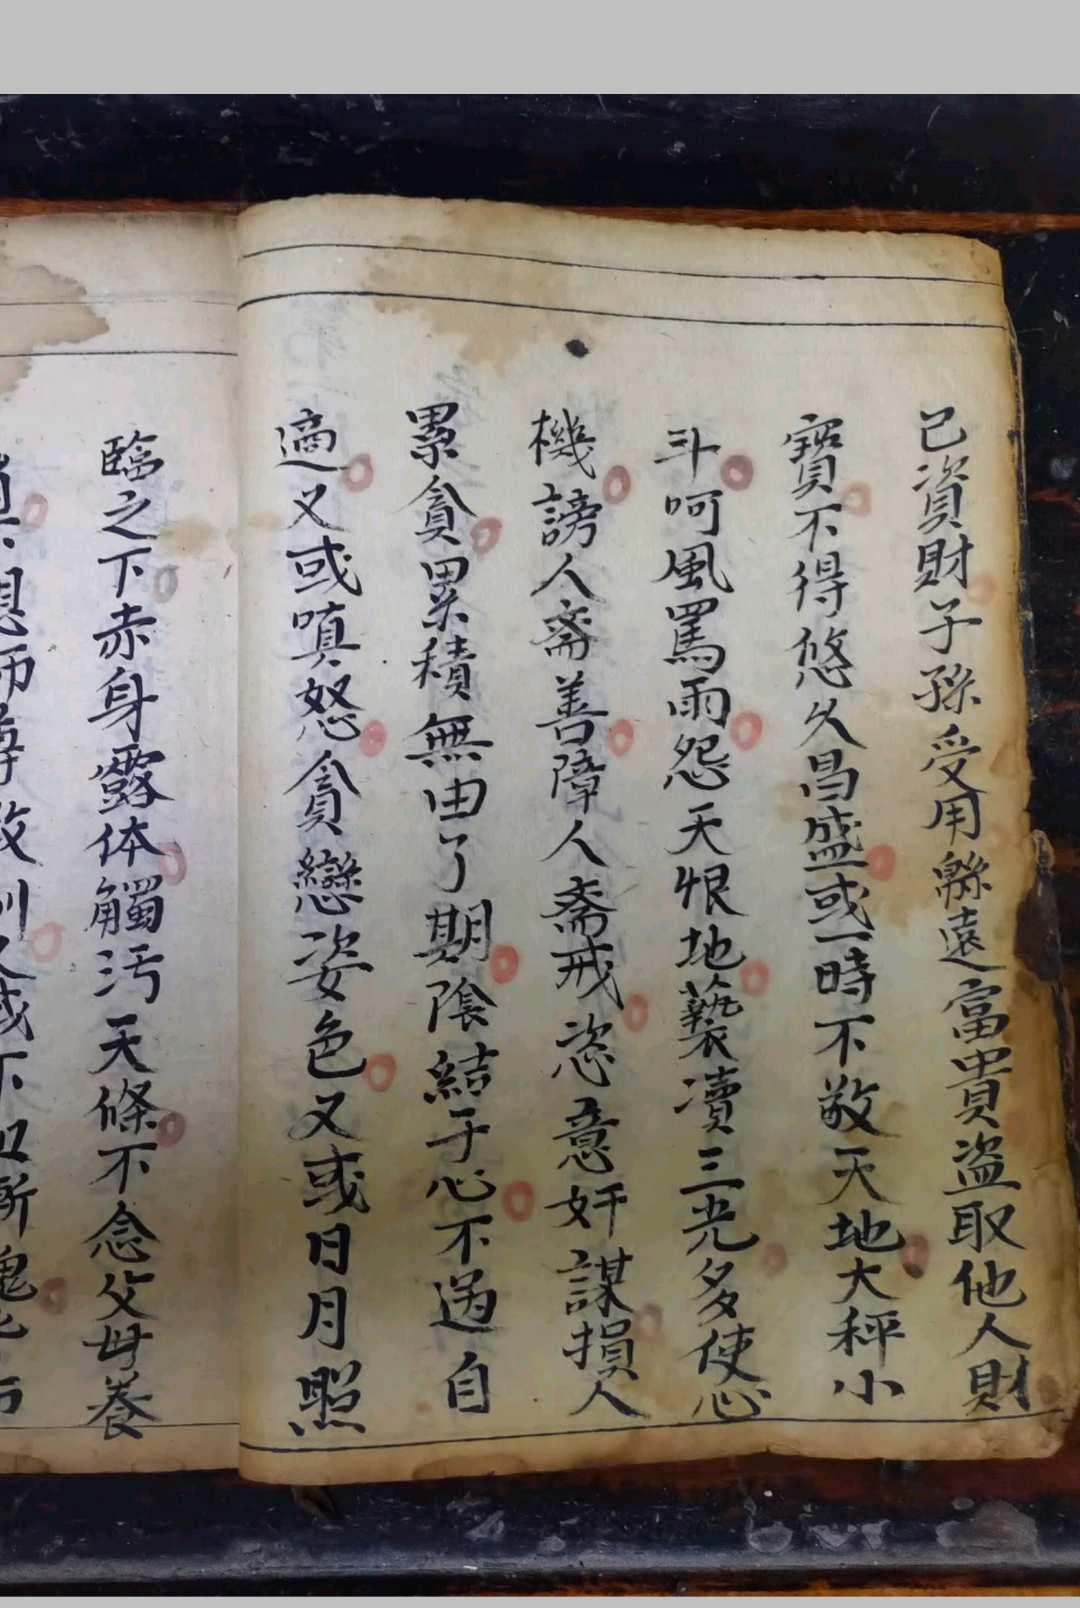 己資財子孫受用緜遠富貴盜取他人財
寳不得悠久昌盛或一時不敬天地大秤小
斗呵風罵雨怨天恨地褻瀆三光多使心
機謗人齋善障人齋戒恣意奸謀損人
累貪累積無由了期陰結于心不過自
適又或嗔怒貪戀姿色又或日月照
臨之下赤身露体觸汚天條不念父母養